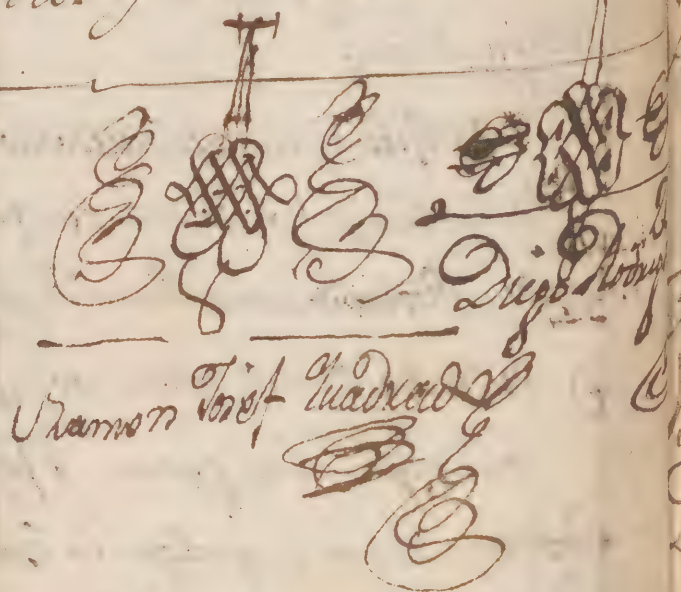 Diego Rodrig
Ramon Josef Quadrado